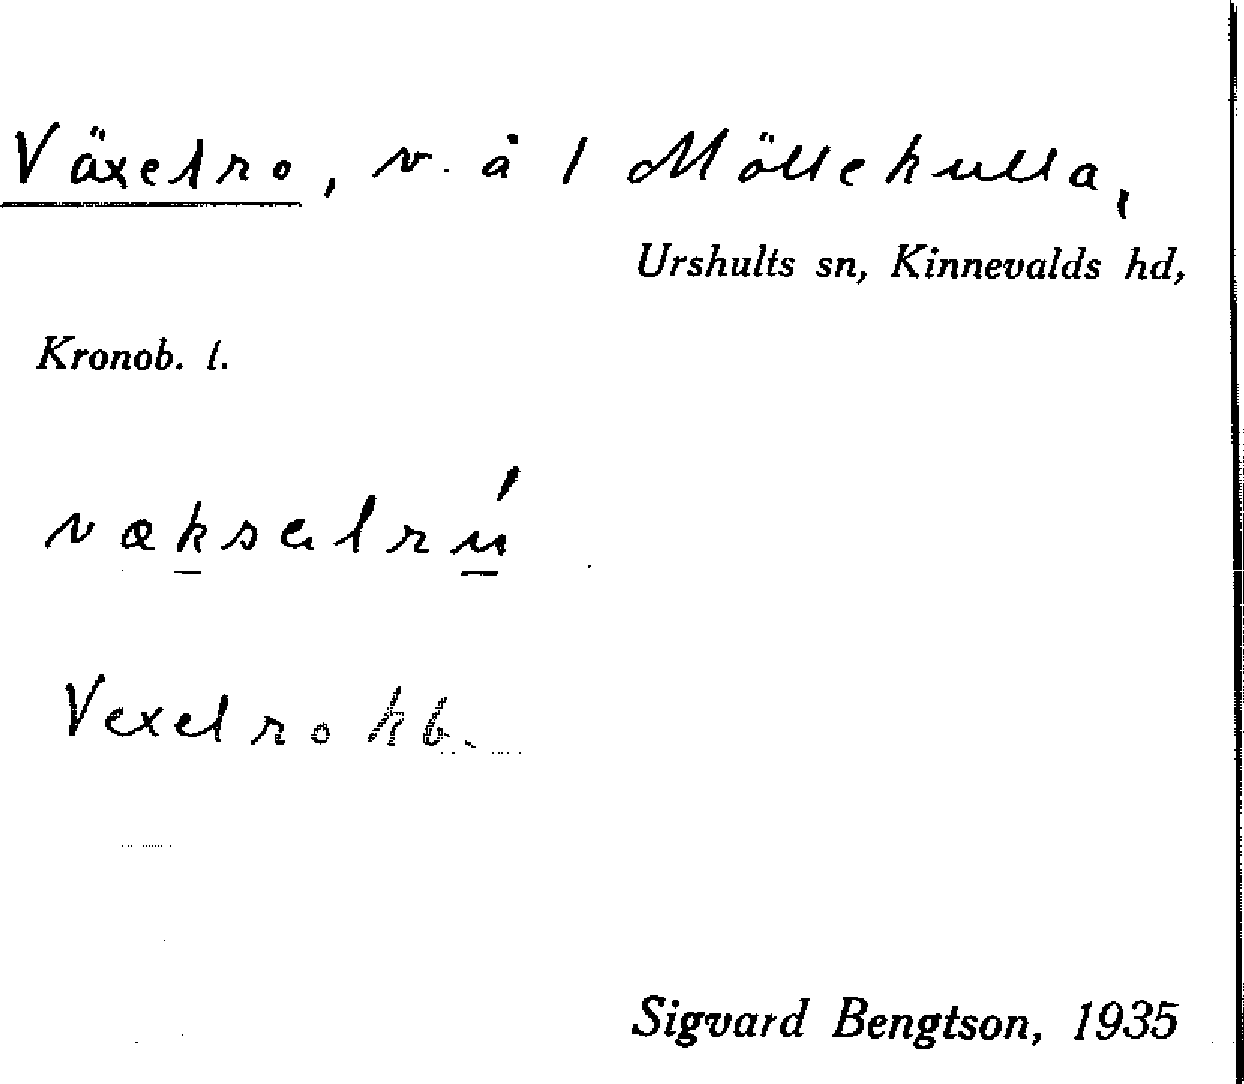 Växelro, v. å 1 Möllekulla,
Urshults sn, Kinnevalds hd,
Kronob. l.
væksəlrú
Vexelro kb.
Sigvard Bengtson, 1935